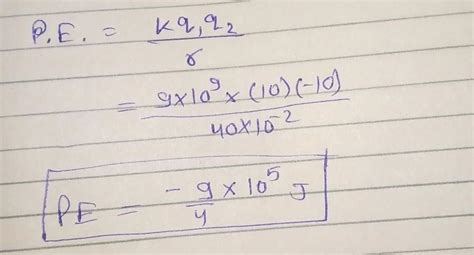 P.E. = kq₁q₂
r
= 9×10⁹×(10)(-10)
40×10⁻²
PE = -9/4 × 10⁵ J